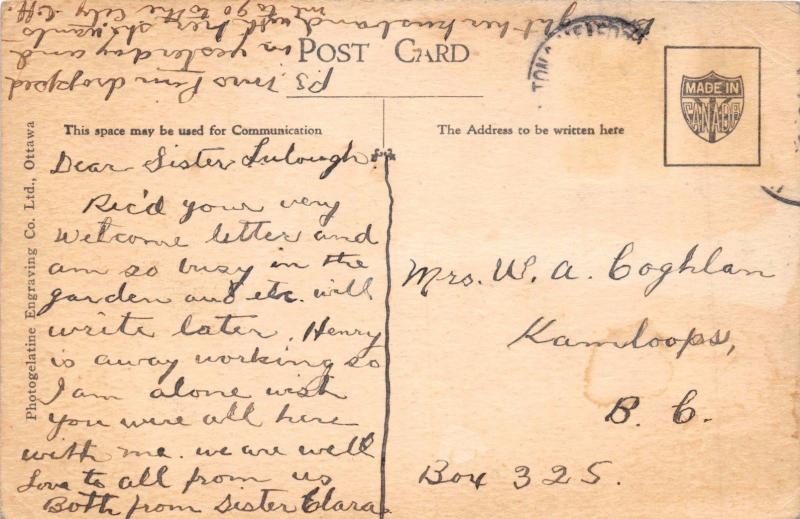 POST CARD
This space may be used for Communication
The Address to be written here
MADE IN
CANADA
Photogelatine Engraving Co. Ltd., Ottawa
Dear Sister
Rec'd your very
welcome letter and
am so busy in the
garden and etc. will
write later. Henry
is away working so
I am alone wish
you were all here
with me. we are well
Love to all from us
Both from Sister Clara.
Mrs. W. A. Coghlan
Kamloops,
B. C.
Box 325.
PS. Mrs dropped
in yesterday and
her husband with her she wants
me to go to the City